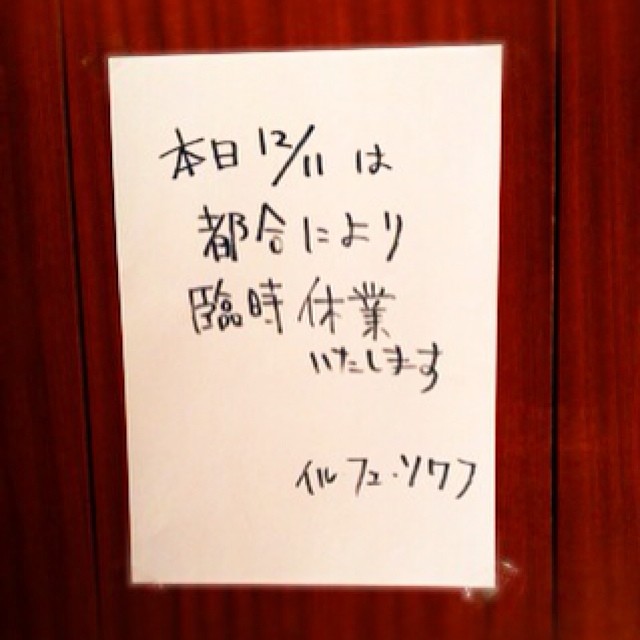 本日 12/11 は
都合により
臨時休業
いたします
イル フェ・ソワフ